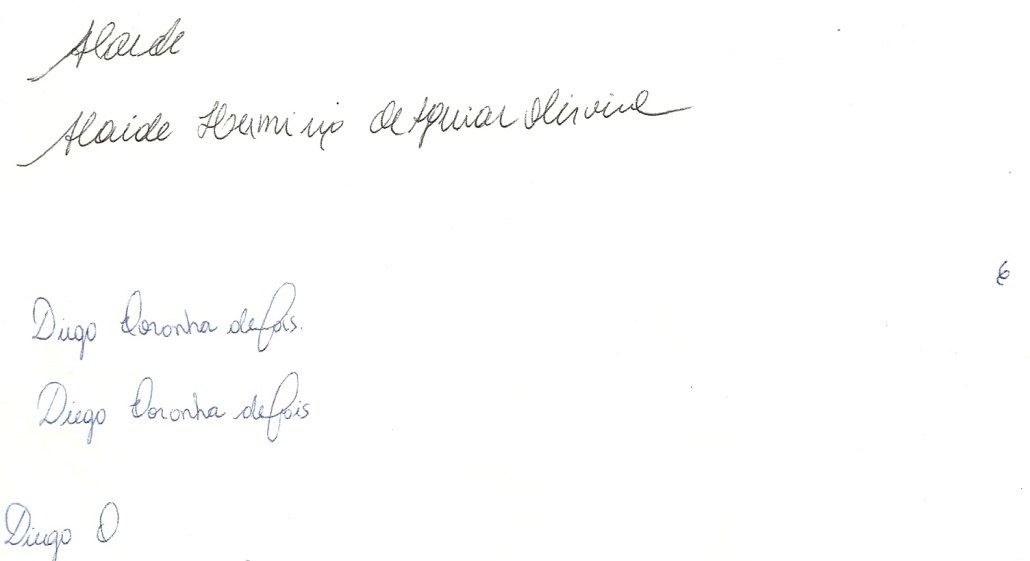 Alaide
Alaide Herminio de Aguiar Oliveira
Diego Noronha de Gois.
Diego Noronha de Gois
Diego